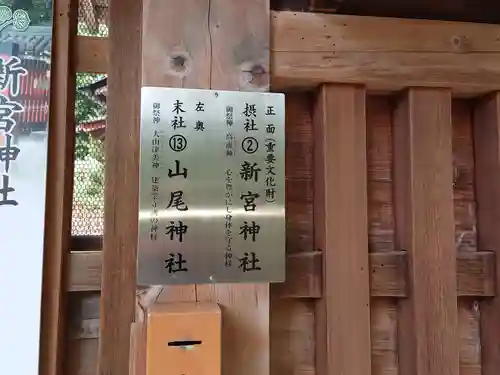 正面(重要文化財)
摂社②新宮神社
御祭神 高龗神 心を豊かにし身体を守る神様
左奥
末社⑬山尾神社
御祭神 大山津美神 建築を守る神様
新宮神社